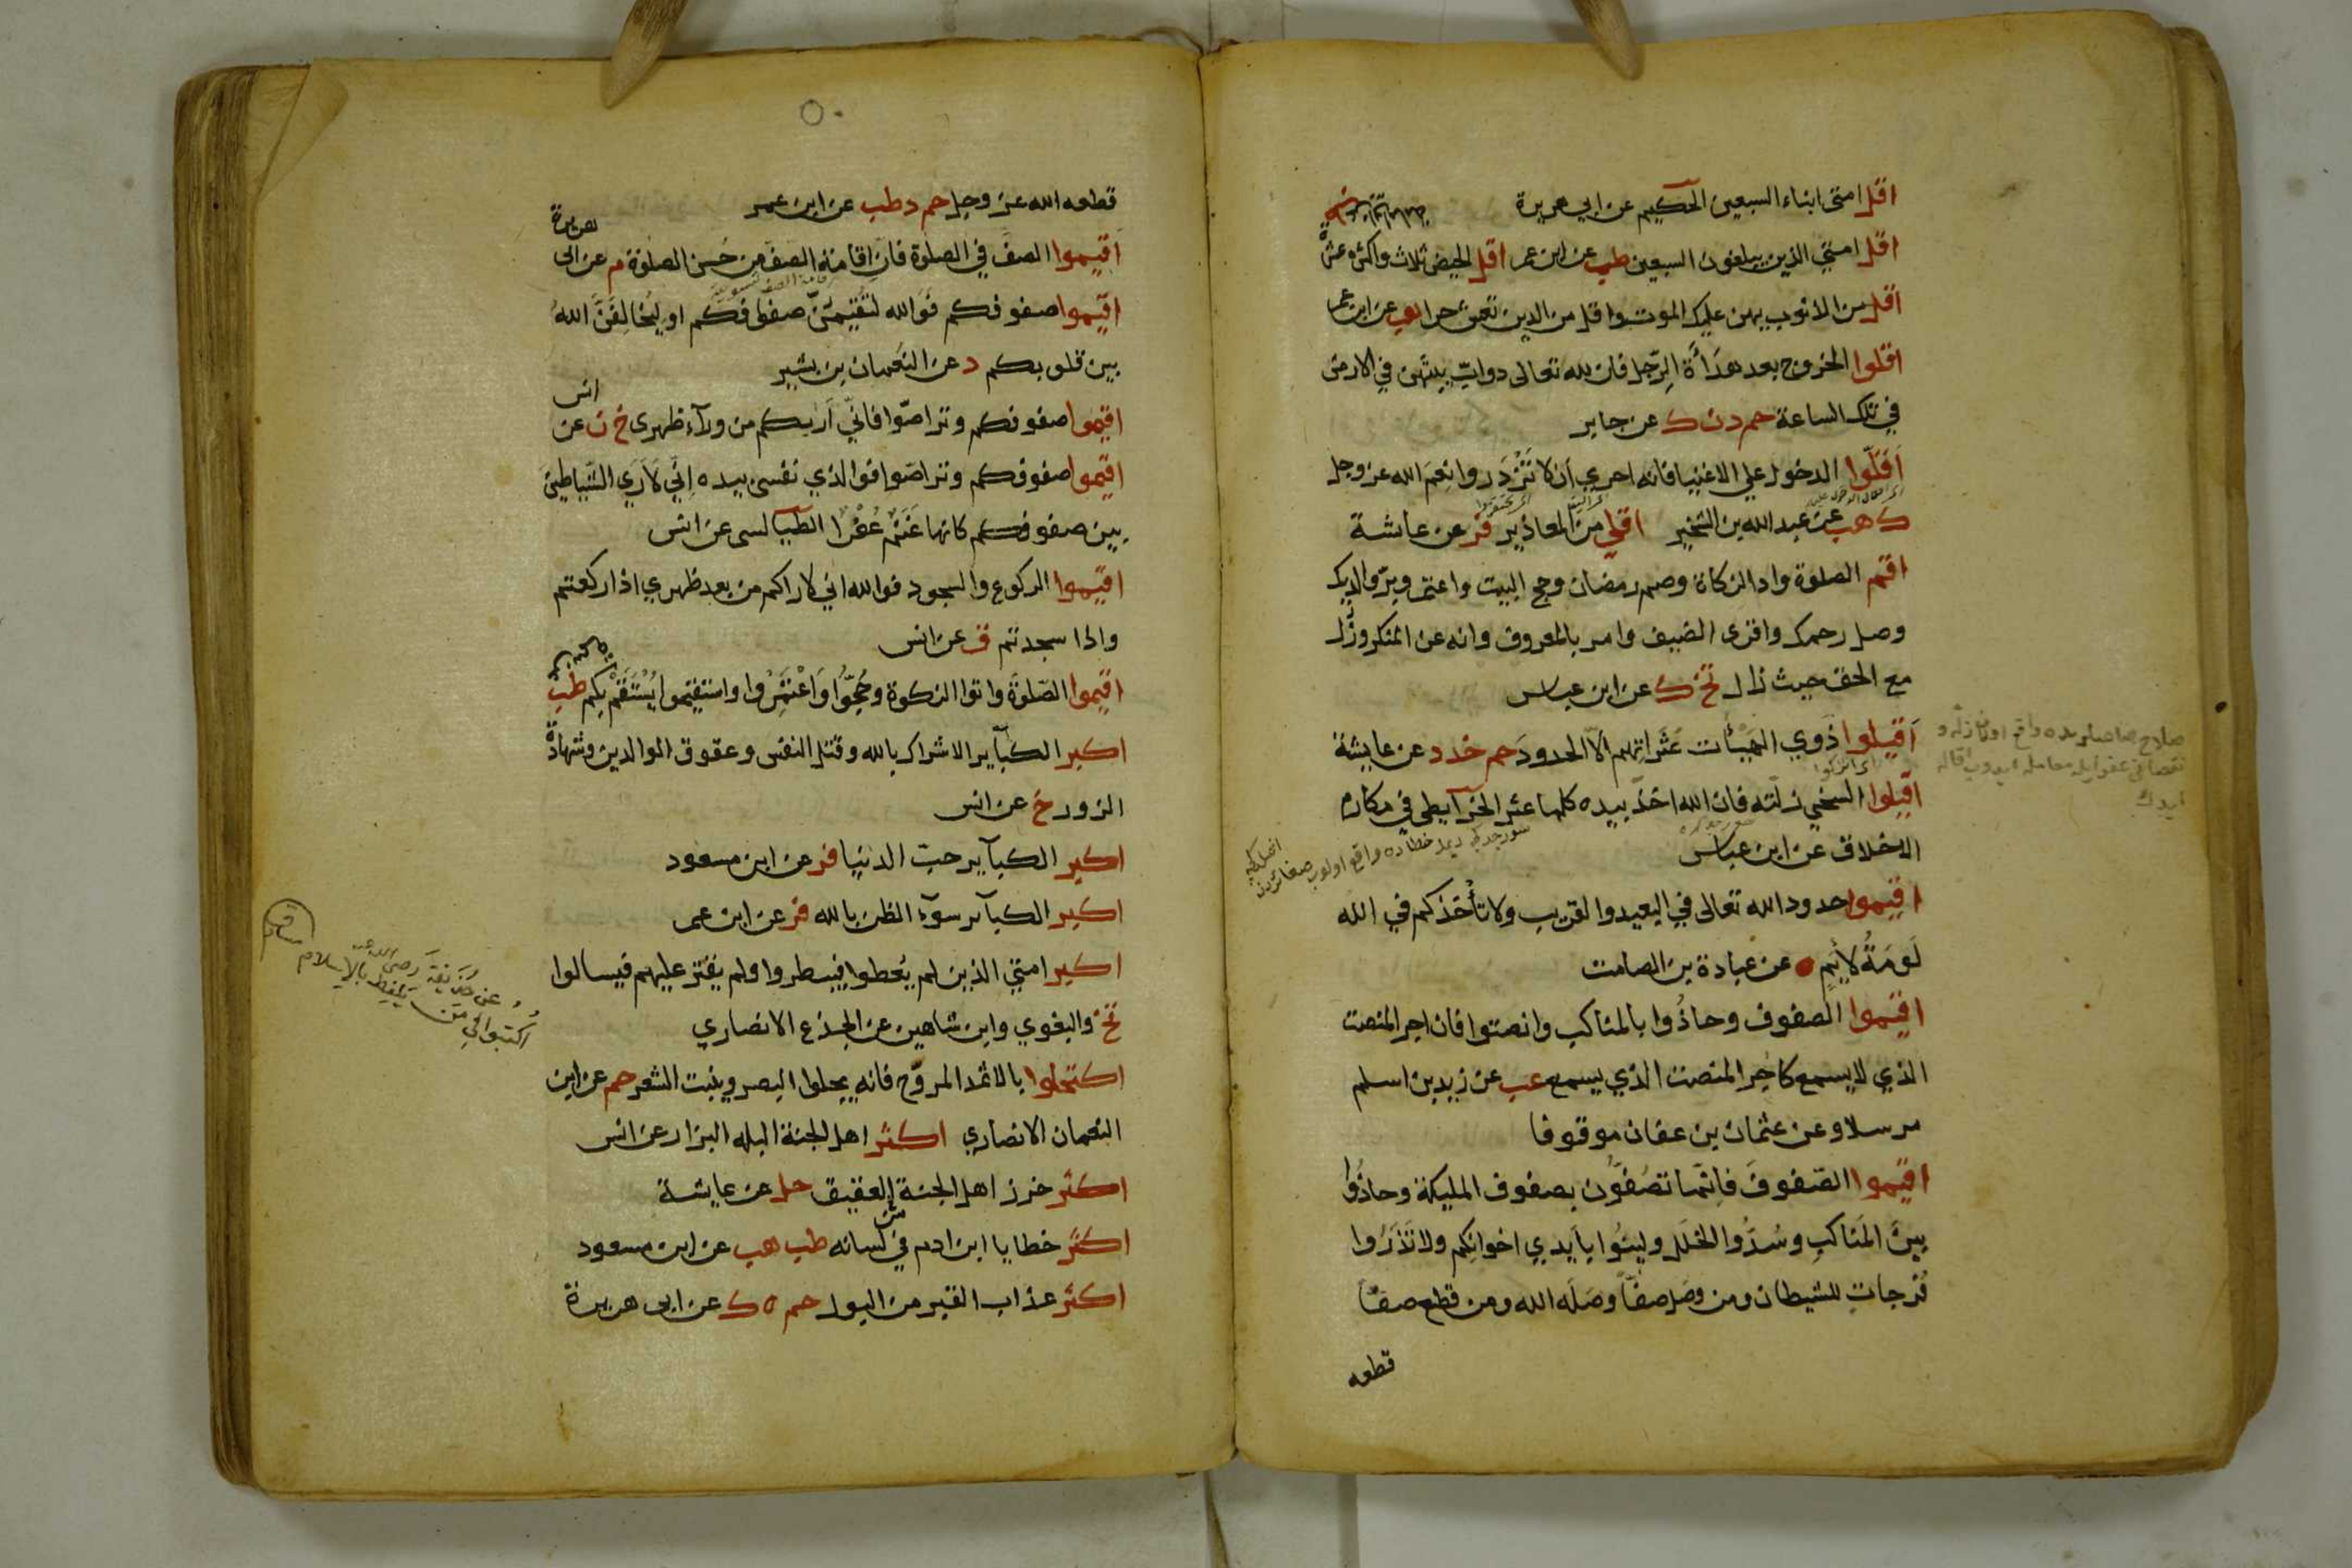 اقل امتي ابناء السبعين الحكيم عن ابي هريرة
اقل امتي الذين يبلغون السبعين طب عن ابن عمر اقل الحيض ثلاث واكثره عشرة
اقل من الذنوب يهن عليك الموت واقل من الدين تعش حرا هب عن ابن عمر
اقلوا الخروج بعد هدأة الرجل فان لله تعالى دواب يبثهن في الارض
في تلك الساعة حم د ن ك عن جابر
اقلوا الدخول علي الاغنيا فانه احري ان لا تزدروا نعم الله عز وجل
ك هب عن عبد الله بن الشخير اقلي من المعاذير فر عن عائشة
اقم الصلوة واد الزكاة وصم رمضان وحج البيت واعتمر وبر والديك
وصل رحمك واقري الضيف وامر بالمعروف وانه عن المنكر وزل
مع الحق حيث زال تخ ك عن ابن عباس
اقيلوا ذوي الهيأت عثراتهم الا الحدود حم خد د عن عايشة
اقيلوا السخي زلته فان الله اخذ بيده كلما عثر الخرآيطي في مكارم
الاخلاق عن ابن عباس
اقيموا حدود الله تعالى في البعيد والقريب ولا تأخذكم في الله
لومة لائم ه عن عبادة بن الصامت
اقيموا الصفوف وحاذوا بالمناكب وانصتوا فان اجر المنصت
الذي لا يسمع كاجر المنصت الذي يسمع عب عن زيد بن اسلم
مرسلا وعن عثمان بن عفان موقوفا
اقيموا الصفوف فانما تصفون بصفوف المليكة وحاذوا
بين المناكب وسدوا الخلل ولينوا بايدي اخوانكم ولا تذروا
فرجات للشيطان ومن وصل صفا وصله الله ومن قطع صفا
قطعه
قطعه الله عز وجل حم د طب عن ابن عمر
اقيموا الصف في الصلوة فان اقامة الصف من حسن الصلوة م عن ابى هريرة
اقيموا صفوفكم فوالله لتقيمن صفوفكم او ليخالفن الله
بين قلوبكم د عن النعمان بن بشير
اقيموا صفوفكم وتراصوا فاني أريكم من ورآء ظهرى خ ن عن انس
اقيموا صفوفكم وتراصوا فوالذي نفسى بيده اني لأري الشياطين
بين صفوفكم كانها غنم عفر الطيآلسى عن انس
اقيموا الركوع والسجود فوالله اني لاراكم من بعد ظهري اذا ركعتم
واذا سجدتم ق عن انس
اقيموا الصلوة واتوا الزكوة وحجوا واعتمروا واستقيموا يستقم بكم طب
اكبر الكبآير الاشراك بالله وقتل النفس وعقوق الوالدين وشهادة
الزور خ عن انس
اكبر الكبآير حب الدنيا فر عن ابن مسعود
اكبر الكبآير سوء الظن بالله فر عن ابن عمر
اكبر امتي الذين لم يعطوا فيبطروا ولم يقتر عليهم فيسالوا
تخ والبغوي وابن شاهين عن الجذع الانصاري
اكتحلوا بالاثمد المروح فانه يجلوا البصر وينبت الشعر حم عن ابن
النعمان الانصاري اكثر اهل الجنة البله البزار عن انس
اكثر خرز اهل الجنة العقيق حل عن عايشة
اكثر خطايا ابن ادم في لسانه طب هب عن ابن مسعود
اكثر عذاب القبر من البول حم ه ك عن ابى هريرة
عن حذيفة رضى الله عنه
اكتبوا لي من تلفظ بالاسلام